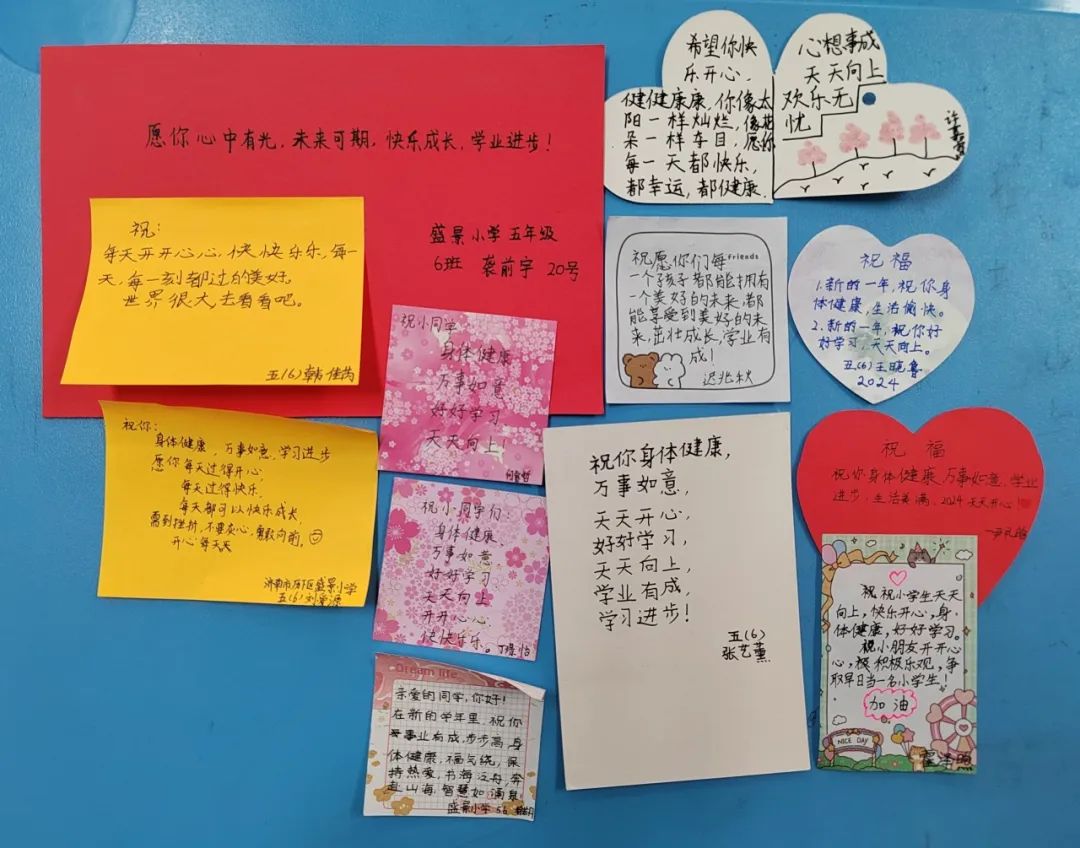 愿你心中有光，未来可期，快乐成长，学业进步！
盛景小学五年级
6班 裘前宇 20号
祝：
每天开开心心，快快乐乐，每一
天，每一刻都过的美好。
世界很大去看看吧。
五(6) 韩佳芮
祝你：
身体健康，万事如意，学习进步
愿你每天过得开心
每天过得快乐
每天都可以快乐成长，
需到挫折，不要灰心，勇敢向前。
开心每天天
济南市历下区盛景小学
五(6)刘
源
祝小同学
身体健康
万事如意
好好学习
天天向上！
祝小同学们：
身体健康
万事如意
好好学习
天天向上
开开心心
快快乐乐。
Dream life
亲爱的同学，你好！
在新的学年里，祝你
事业有成，步步高，身
体健康，福气绕，保
持热爱，书海泛舟，奔
赴山海，智慧如涌泉
盛景小学 5.6
希望你快
乐开心，
健健康康，你像太
阳一样灿烂，像花
朵一样夺目，愿你
每一天都快乐，
都幸运，都健康．
心想事成
天天向上
欢乐无
忧
Friends
祝愿你们每
一个孩子都能拥有
一个美好的未来，都
能享受到美好的未
来，茁壮成长，学业有
成！
迟兆秋
祝福
1.新的一年，祝你身
体健康，生活愉快。
2.新的一年，祝你好
好学习，天天向上。
五(6)王晓鲁
2024
祝你身体健康，
万事如意，
天天开心，
好好学习，
天天向上，
学业有成，
学习进步！
五(6)
张艺薰
祝福
祝你身体健康，万事如意，学业
进步，生活美满，2024天天开心！
祝祝小学生天天
向上，快乐开心，身
体健康，好好学习。
祝小朋友开开心
心，极积极乐观，争
取早日当一名小学生！
加油
NICE DAY